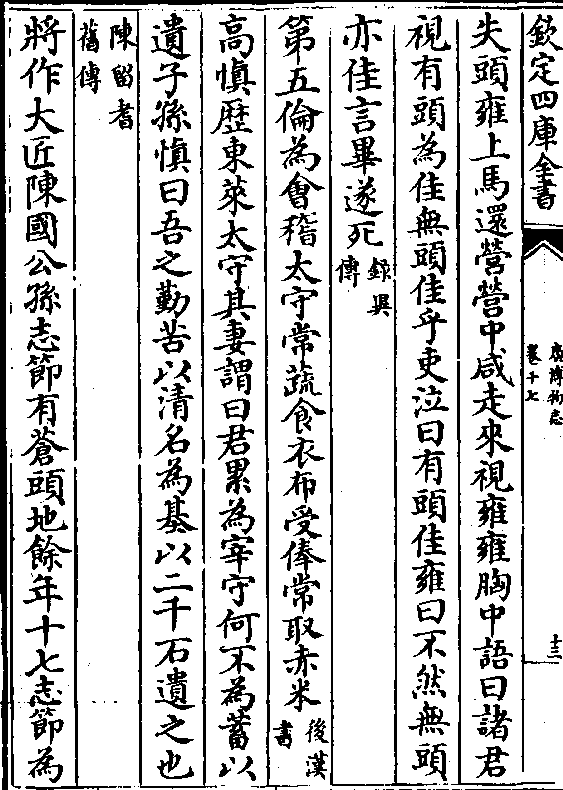 欽定四庫全書
廣博物志
卷十七
十三
失頭雍上馬還營營中咸走來視雍雍胸中語曰諸君
視有頭為佳無頭佳乎吏泣曰有頭佳雍曰不然無頭
亦佳言畢遂死錄異傳
第五倫為會稽太守常蔬食衣布受俸常取赤米後漢書
高慎歷東萊太守其妻謂曰君累為宰守何不為蓄以
遺子孫慎曰吾之勤苦以清名為基以二千石遺之也
陳留耆舊傳
將作大匠陳國公孫志節有蒼頭地餘年十七志節為